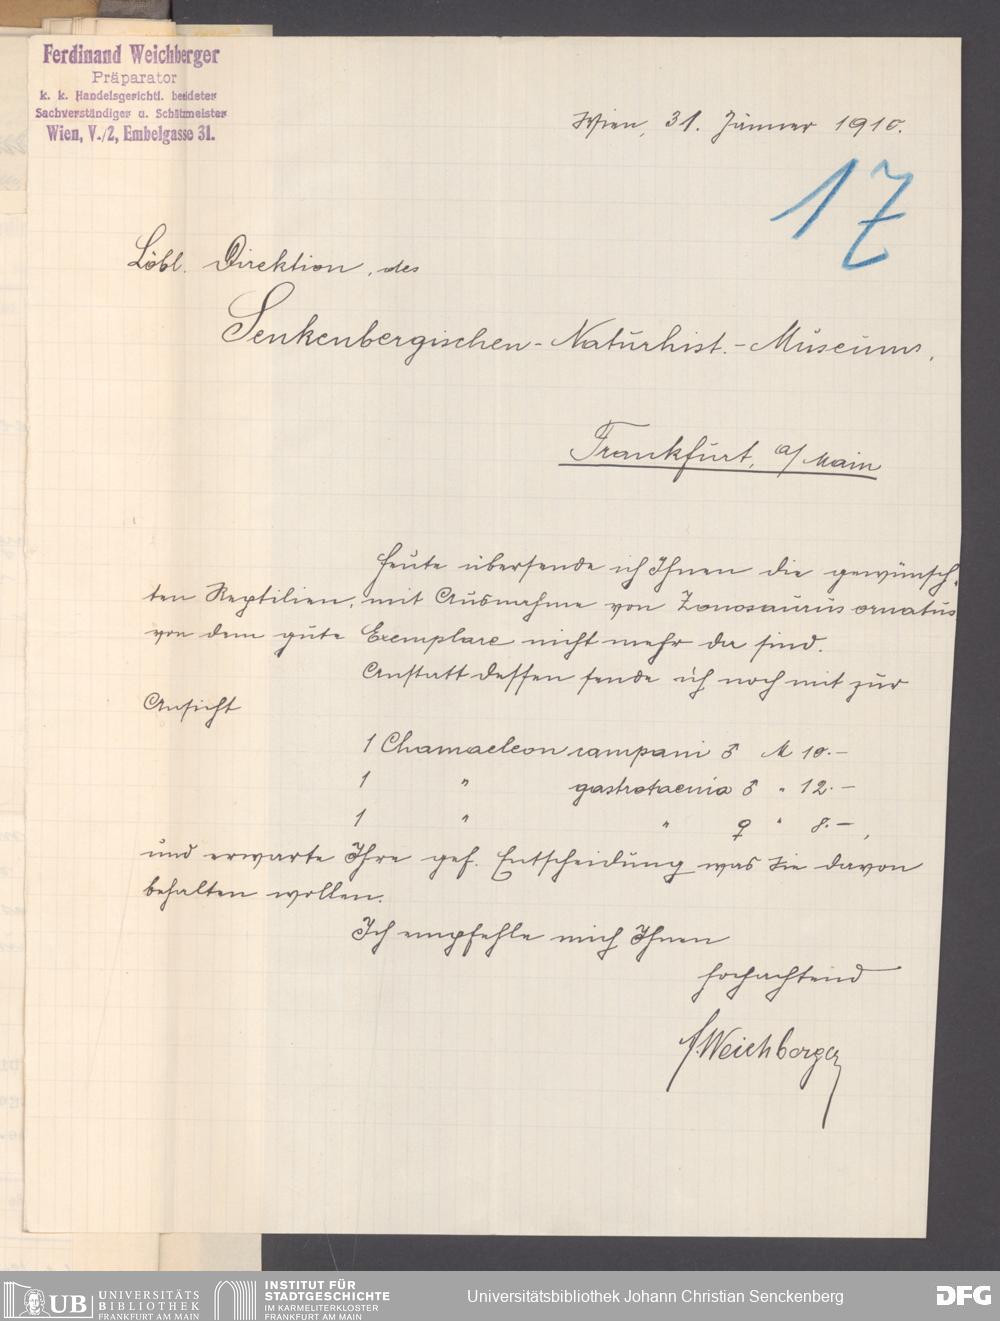 Ferdinand Weichberger
Präparator
k. k. Handelsgerichtl. beeideter
Sachverständiger u. Schätzmeister
Wien, V./2, Embelgasse 31.
Wien, 31. Jänner 1910.
17
Löbl. Direktion, des
Senkenbergischen-Naturhist.-Museums,
Frankfurt, a/Main
Heute übersende ich Ihnen die gewünsch-
ten Reptilien, mit Ausnahme von Zonosaurus ornatus
von dem gute Exemplare nicht mehr da sind.
Anstatt dessen sende ich noch mit zur
Ansicht
1 Chamaeleon campani ♂ M 10.-
1 " gastrotaenia ♂ " 12.-
1 " " ♀ " 8.-,
und erwarte Ihre gef. Entscheidung was Sie davon
behalten wollen.
Ich empfehle mich Ihnen
hochachtend
F. Weichberger
UB UNIVERSITÄTS
BIBLIOTHEK
FRANKFURT AM MAIN
INSTITUT FÜR
STADTGESCHICHTE
IM KARMELITERKLOSTER
FRANKFURT AM MAIN
Universitätsbibliothek Johann Christian Senckenberg
DFG